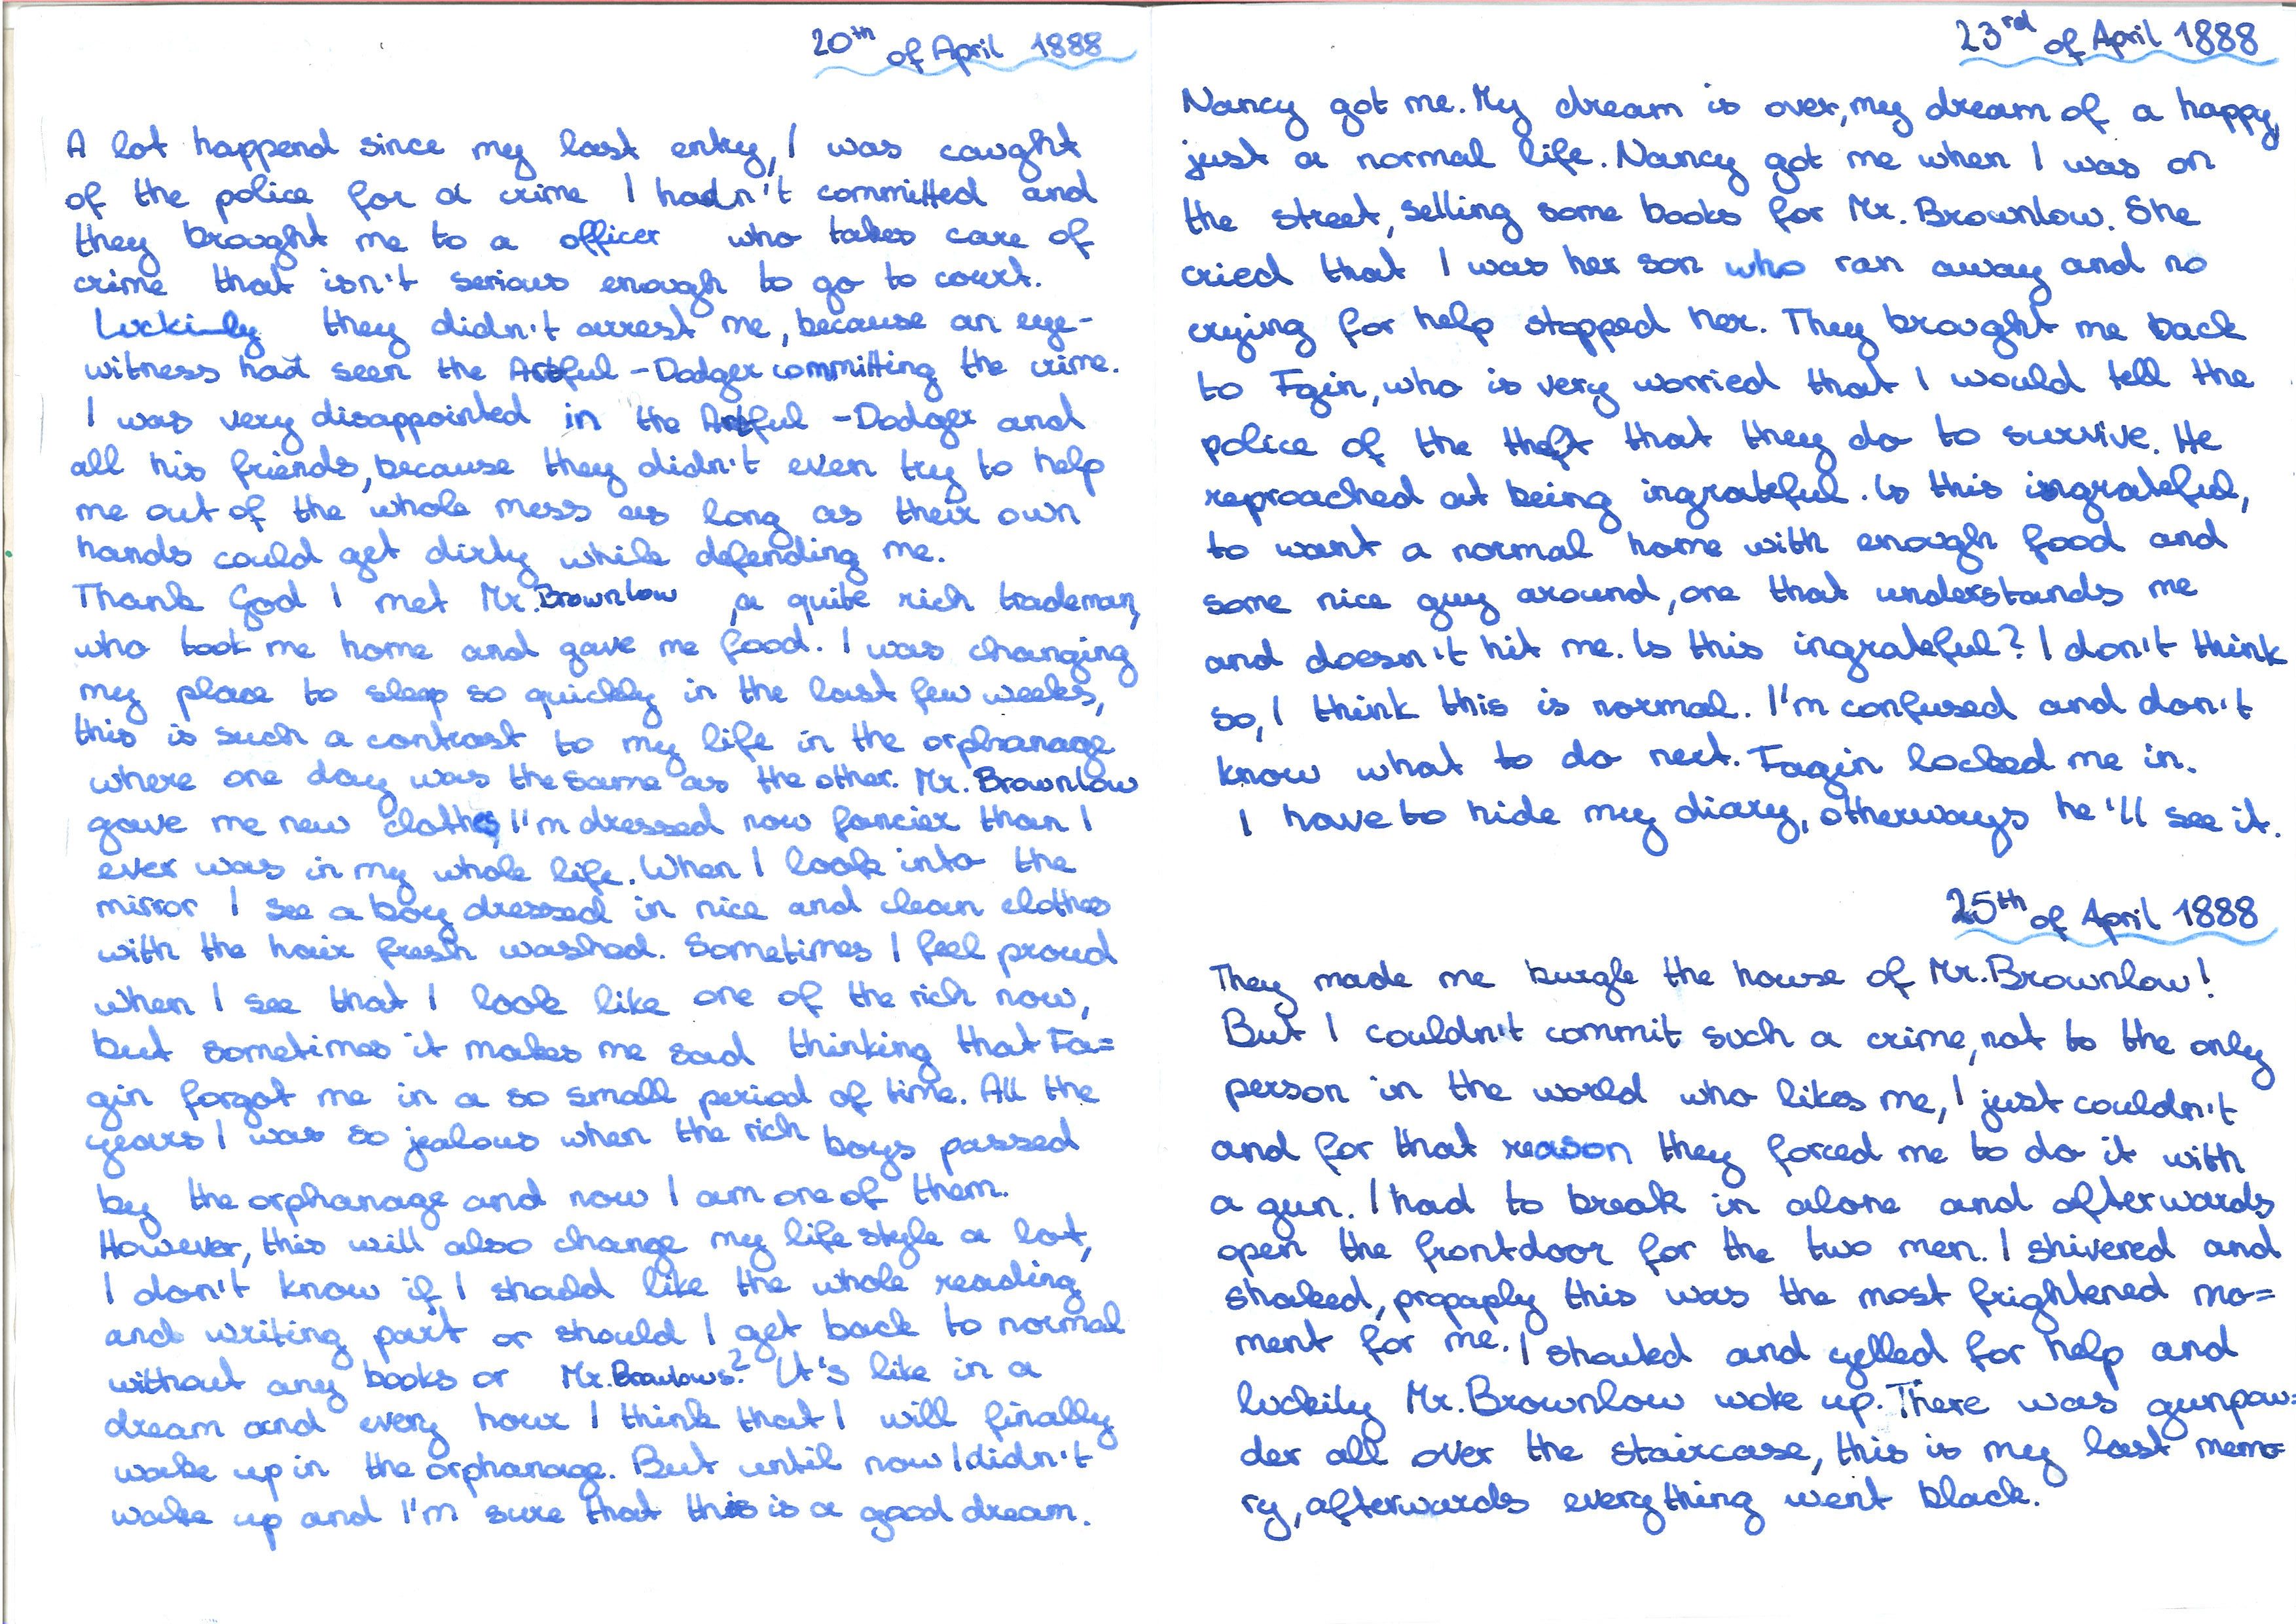 20th of April 1888
A lot happend since my last entry, I was caught
of the police for a crime I hadn't committed and
they brought me to a officer who takes care of
crime that isn't serious enough to go to court.
Luckily they didn't arrest me, because an eye-
witness had seen the Artful-Dodger committing the crime.
I was very disappointed in the Artful-Dodger and
all his friends, because they didn't even try to help
me out of the whole mess as long as their own
hands could get dirty while defending me.
Thank God I met Mr. Brownlow, a quite rich trademan,
who took me home and gave me food. I was changing
my place to sleep so quickly in the last few weeks,
this is such a contrast to my life in the orphanage
where one day was the same as the other. Mr. Brownlow
gave me new clothes, I'm dressed now fancier than I
ever was in my whole life. When I look into the
mirror I see a boy dressed in nice and clean clothes
with the hair fresh washed. Sometimes I feel proud
when I see that I look like one of the rich now,
but sometimes it makes me sad thinking that Fa=
gin forgot me in a so small period of time. All the
years I was so jealous when the rich boys passed
by the orphanage and now I am one of them.
However, this will also change my life style a lot,
I don't know if I should like the whole reading
and writing part or should I get back to normal
without any books or Mr. Browlows? It's like in a
dream and every hour I think that I will finally
wake up in the orphanage. But until now I didn't
wake up and I'm sure that this is a good dream.
23rd of April 1888
Nancy got me. My dream is over, my dream of a happy,
just a normal life. Nancy got me when I was on
the street, selling some books for Mr. Brownlow. She
cried that I was her son who ran away and no
crying for help stopped her. They brought me back
to Fgin, who is very worried that I would tell the
police of the theft that they do to survive. He
reproached at being ingrateful. Is this ingrateful,
to want a normal home with enough food and
some nice guy around, one that understands me
and doesn't hit me. Is this ingrateful? I don't think
so, I think this is normal. I'm confused and don't
know what to do next. Fagin locked me in.
I have to hide my diary, otherways he'll see it.
25th of April 1888
They made me burgle the house of Mr. Brownlow!
But I couldn't commit such a crime, not to the only
person in the world who likes me, I just couldn't
and for that reason they forced me to do it with
a gun. I had to break in alone and afterwards
open the frontdoor for the two men. I shivered and
shaked, propaply this was the most frightened mo=
ment for me. I shouted and yelled for help and
luckily Mr. Brownlow woke up. There was gunpow=
der all over the staircase, this is my last memo-
ry, afterwards everything went black.